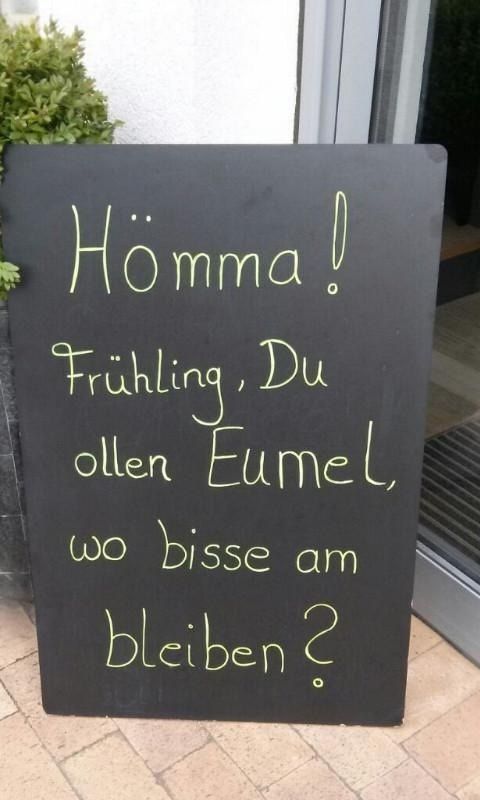 Hömma!
Frühling, Du
ollen Eumel,
wo bisse am
bleiben?